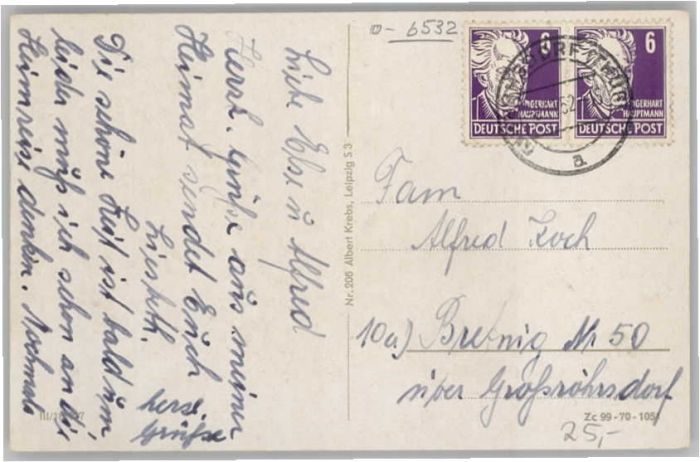 o- 6532
6 6
GERHART HAUPTMANN GERHART HAUPTMANN
DEUTSCHE POST DEUTSCHE POST
a
Liebe Else u Alfred
Herzl. Grüße aus meiner
Heimat sendet Euch
Liesbeth.
Die schöne Zeit ist bald um
leider muß ich schon an die
Heimreise denken. Nochmals
herzl.
Grüße
Nr. 206 Albert Krebs, Leipzig S 3
Fam
Alfred Koch
10a) Bretnig Nr 50
über Großröhrsdorf
Zc 99-70-1051
25,-